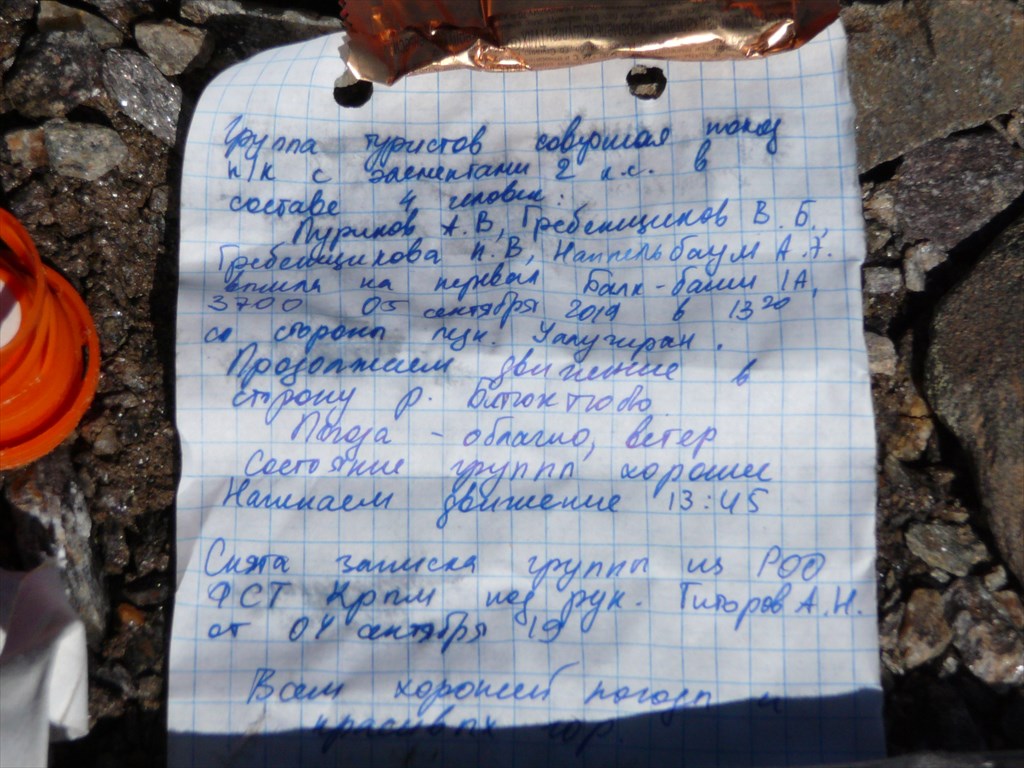 Группа туристов совершая поход
п/к с элементами 2 к.с. в
составе 4 человек:
Пуриков А.В, Гребенщиков В.Б.,
Гребенщикова Н.В, Наппельбаум А.
вышли на перевал Балк-баши 1А,
3700 05 сентября 2019 в 13 20
со стороны лдн.
Продолжаем движение в
сторону р.
Погода - облачно, ветер
Состояние группы хорошее
Начинаем движение 13:45
Снята записка группы из РОО
ФСТ Крым под рук. Титоров А.Н.
от 04 сентября 19
Всем хорошей погоды и
красивых гор